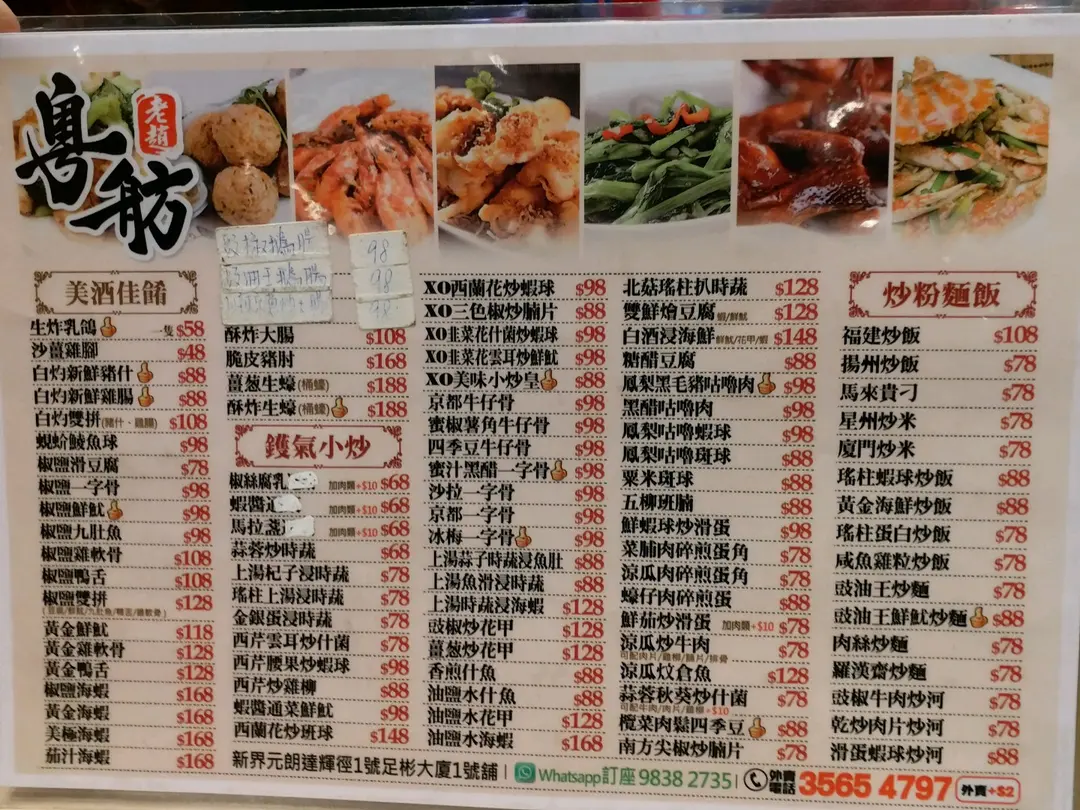 粵舫
老趙
美酒佳餚
生炸乳鴿 一隻$58
沙薑雞腳 $48
白灼新鮮豬什 $88
白灼新鮮雞腸 $88
白灼雙拼(豬什、雞腸) $108
蜆蚧鯪魚球 $98
椒鹽滑豆腐 $78
椒鹽一字骨 $98
椒鹽鮮魷 $98
椒鹽九肚魚 $98
椒鹽雞軟骨 $108
椒鹽鴨舌 $108
椒鹽雙拼 $128
黃金鮮魷 $118
黃金雞軟骨 $128
黃金鴨舌 $128
椒鹽海蝦 $168
黃金海蝦 $168
美極海蝦 $168
茄汁海蝦 $168
豉椒鵝腸 98
豉油王鵝腸 98
98
酥炸大腸 $108
脆皮豬肘 $168
薑葱生蠔(桶蠔) $188
酥炸生蠔(桶蠔) $188
鑊氣小炒
椒絲腐乳 加肉類+$10 $68
蝦醬通 加肉類+$10 $68
馬拉盞 加肉類+$10 $68
蒜蓉炒時蔬 $68
上湯杞子浸時蔬 $78
瑤柱上湯浸時蔬 $78
金銀蛋浸時蔬 $78
西芹雲耳炒什菌 $78
西芹腰果炒蝦球 $98
西芹炒雞柳 $88
蝦醬通菜鮮魷 $98
西蘭花炒班球 $148
XO西蘭花炒蝦球 $98
XO三色椒炒腩片 $88
XO韭菜花什菌炒蝦球 $98
XO韭菜花雲耳炒鮮魷 $98
XO美味小炒皇 $88
京都牛仔骨 $98
蜜椒薯角牛仔骨 $98
四季豆牛仔骨 $98
蜜汁黑醋一字骨 $98
沙拉一字骨 $98
京都一字骨 $98
冰梅一字骨 $98
上湯蒜子時蔬浸魚肚 $88
上湯魚滑浸時蔬 $88
上湯時蔬浸海蝦 $128
豉椒炒花甲 $128
薑葱炒花甲 $128
香煎什魚 $88
油鹽水什魚 $88
油鹽水花甲 $128
油鹽水海蝦 $168
北菇瑤柱扒時蔬 $128
雙鮮燴豆腐 蝦/鮮魷 $128
白酒浸海鮮 鮮魷/花甲/蝦 $148
糖醋豆腐 $88
鳳梨黑毛豬咕嚕肉 $98
黑醋咕嚕肉 $98
鳳梨咕嚕蝦球 $98
鳳梨咕嚕斑球 $88
粟米斑球 $88
五柳班腩 $88
鮮蝦球炒滑蛋 $98
菜脯肉碎煎蛋角 $78
涼瓜肉碎煎蛋角 $78
蠔仔肉碎煎蛋 $88
鮮茄炒滑蛋 加肉類+$10 $78
涼瓜炒牛肉 $78
可配肉片/雞柳/腩片/排骨
涼瓜炆倉魚 $128
蒜蓉秋葵炒什菌 $78
可配牛肉/肉片/雞柳+$10
欖菜肉鬆四季豆 $88
南方尖椒炒腩片 $78
炒粉麵飯
福建炒飯 $108
揚州炒飯 $78
馬來貴刁 $78
星州炒米 $78
廈門炒米 $78
瑤柱蝦球炒飯 $88
黃金海鮮炒飯 $88
瑤柱蛋白炒飯 $78
咸魚雞粒炒飯 $78
豉油王炒麵 $78
豉油王鮮魷炒麵 $88
肉絲炒麵 $78
羅漢齋炒麵 $78
豉椒牛肉炒河 $78
乾炒肉片炒河 $78
滑蛋蝦球炒河 $88
新界元朗達輝徑1號足彬大廈1號舖 | Whatsapp訂座 9838 2735 | 外賣電話 3565 4797 外賣+$2